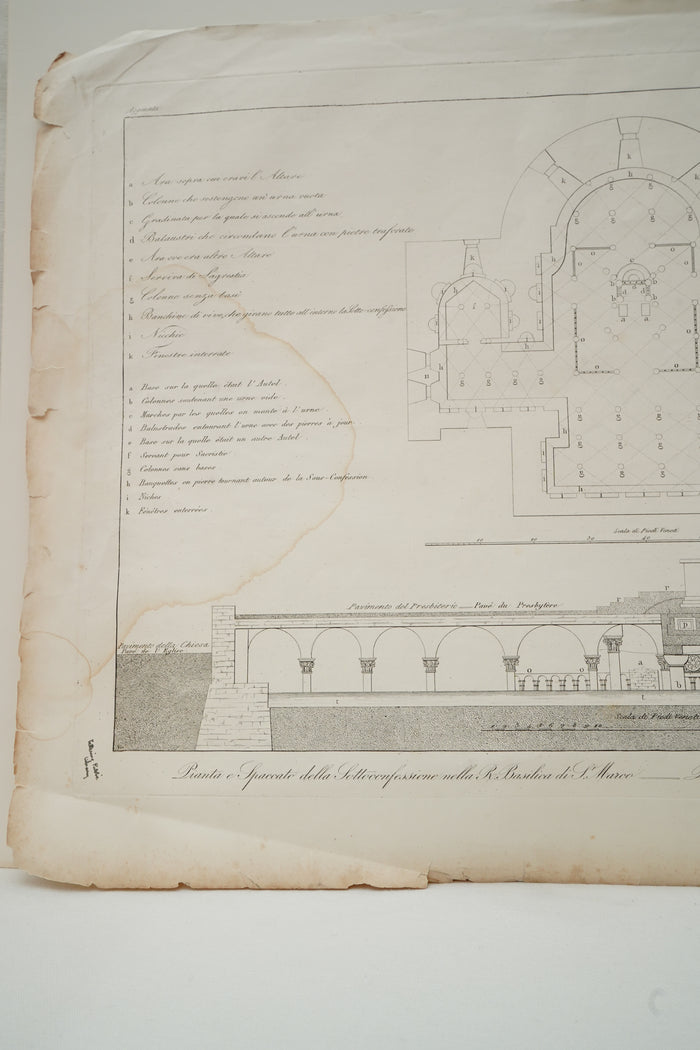 Aggiunta
a Ara sopra cui eravi l'Altare
b Colonne che sostengono un'urna vuota
c Gradinata per la quale si ascende all'urna
d Balaustri che circondano l'urna con pietre traforate
e Ara ove era altro Altare
f Serviva di Sagrestia
g Colonne senza basi
h Banchine di vivo, che girano tutto all'interno la Sotto-confessione
i Nicchie
k Finestre interrate
a Base sur la quelle était l'Autel.
b Colonnes soutenant une urne vide.
c Marches par les quelles on monte à l'urne.
d Balustrades entourant l'urne avec des pierres à jour.
e Base sur la quelle était un autre Autel.
f Servant pour Sacristie
g Colonnes sans bases
h Banquettes en pierre tournant autour de la Sous-Confession.
i Niches
k Fenêtres enterrées.
Scala di Piedi Veneti
10 20 30 40
Pavimento del Presbiterio — Pavé du Presbytère
Pavimento della Chiesa
Pavé de l'Eglise
Scala di Piedi Veneti
Pianta e Spaccato della Sottoconfessione nella R. Basilica di S. Marco —